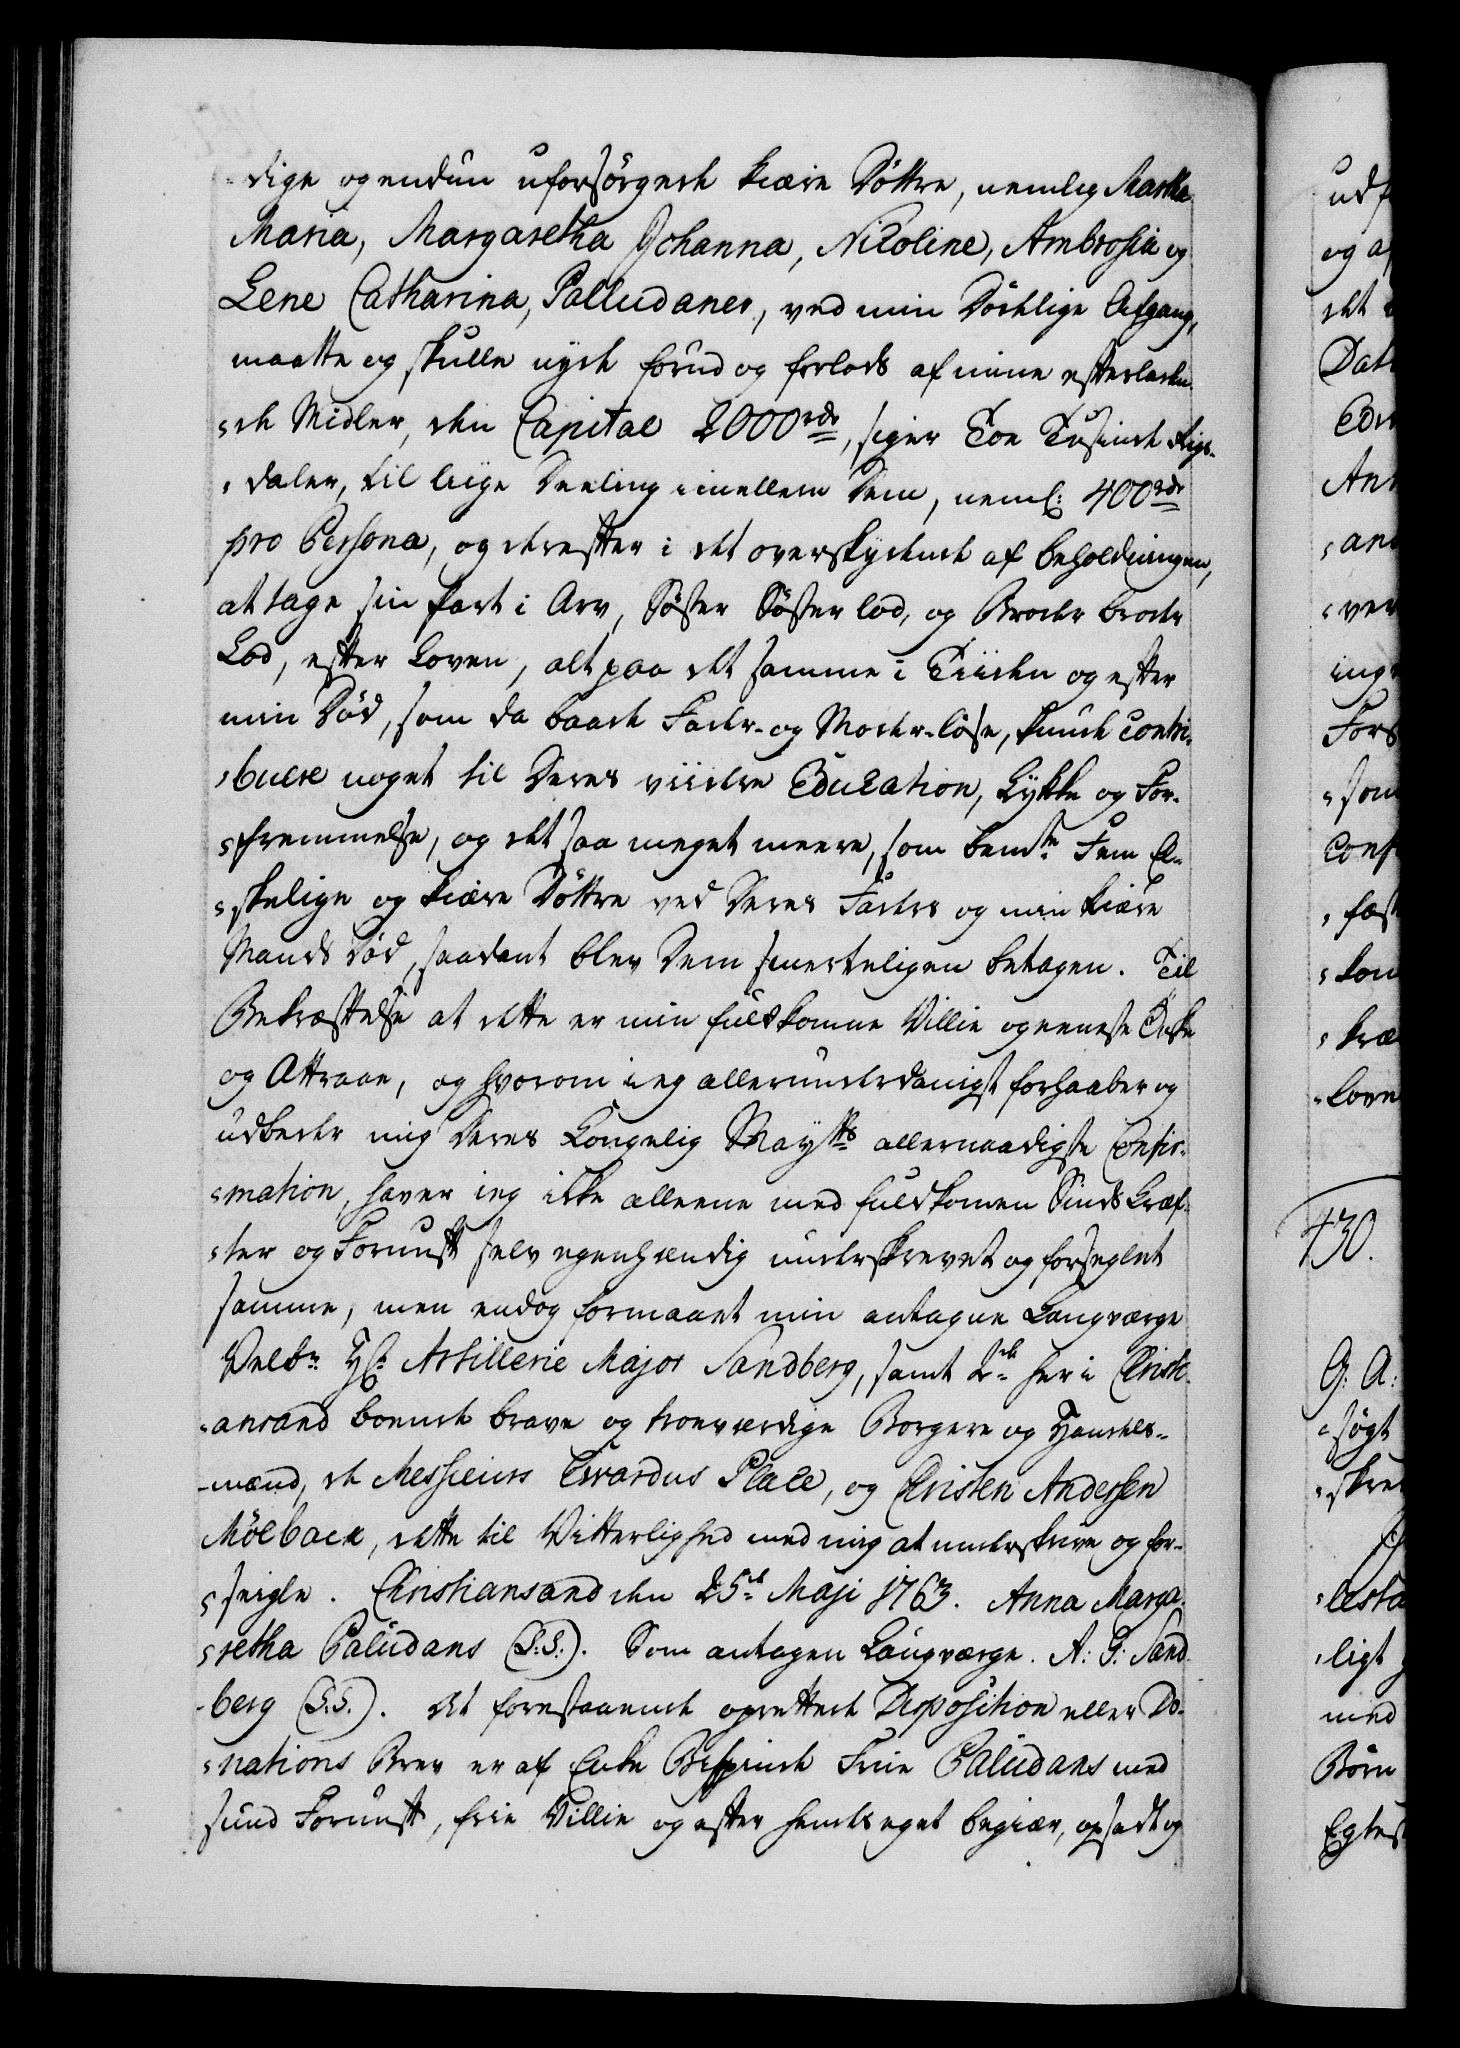 -dige og endnu uforsørgede kiære Døttre, nemlig Martha
Maria, Margaretha Johanna, Nicoline, Ambrosia og
Lene Catharina, Palludaner, ved min Dödelige Afgang,
maatte og skulle nyde forud og forlods af mine efterladen-
-de Midler, den Capital 2000rdr, siger Toe Tusinde Rigs-
-daler, til liige Deeling imellem Dem, neml: 400rdr
pro Persona, og derefter i det overskydende af beholdningen,
at tage sin Part i Arv, Söster Söster lod, og Broder broder
Lod, efter Loven, alt paa det samme i Tiiden og efter
min Död, som da baade Fader- og Moder-løse, kunde contri-
-buere noget til Deres viidere Education, Lykke og For-
-fremmelse, og det saa meget meere, som bemte Fem El-
-skelige og kiære Døttre ved Deres Faders og min kiære
Mands Död, saadant blev Dem smerteligen betagen. Til
Bekræftelse at dette er min fuldkomne Villie og eeneste Önske
og Attraae, og hvorom ieg allerunderdanigst forhaaber og
udbeder mig Deres Kongelig Maytts allernaadigste Confir-
-mation, haver ieg ikke alleene med fuldkomen Sinds Kræf-
-ter og Fornuft selv egenhændig underskrevet og forseglet
samme, men endog formaaet min antagne Laugværge
Velbr Hr Artillerie Major Sandberg, samt 2de her i Christi-
-ansand boende brave og troeværdige Borgere og Handels-
-mænd, de Messieurs Evardus Place, og Christen Andersen
Mölback, dette til Vitterlighed med mig at underskrive og for-
-seigle. Christiansand den 25de Maji 1763. Anna Marga-
-retha Paludans (L:S:). Som antagen Laugværge. A: G: Sand-
-berg (L:S:). At forestaaende oprettede Disposition eller Do-
-nations Brev er af Enke Bispinde Frue Paludans med
sund Fornuft, frie Villie og efter hendes eget begiær, opsadt og
udf
og a
det
Dat
Edv
An
-an
-ver
ing
Fors
-som
Conf
-fæst
-kon
-kræ
-love
430.
G: A:
-søgt
-skre
-lesta
-ligt
med
Börn
Egtes